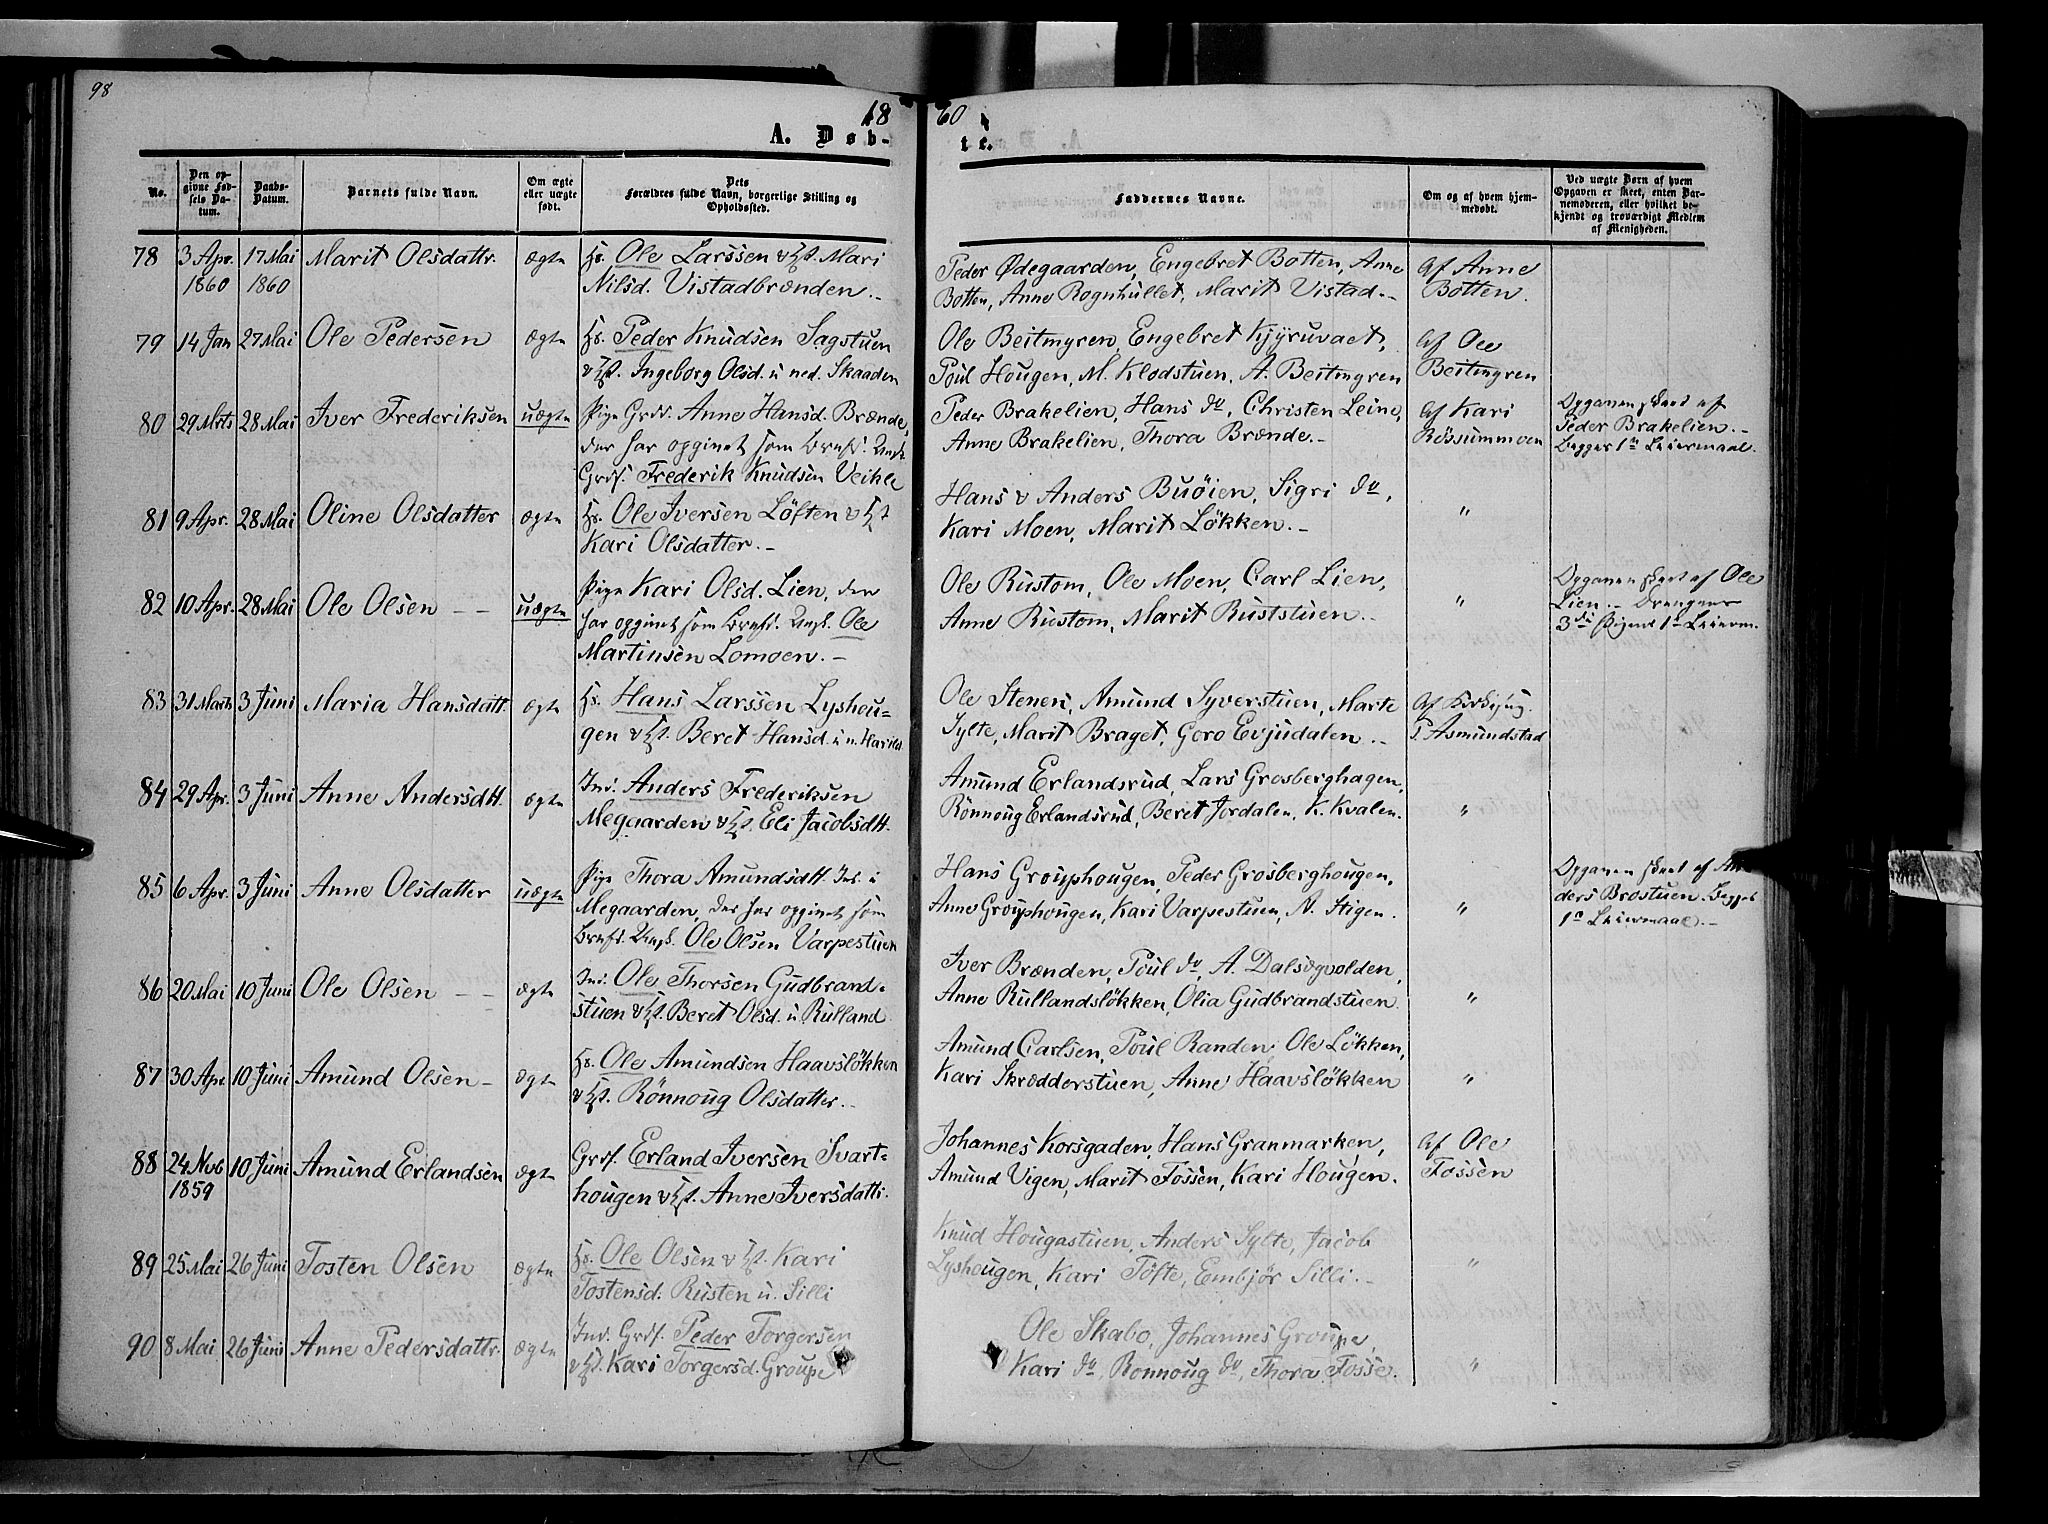 98
18 60
A. Døb- te.
No.
Den opgivne Fødsels Datum.
Daabs-Datum.
Barnets fulde Navn.
Om ægte eller uægte født.
Dets Forældres fulde Navn, borgerlige Stilling og Opholdssted.
Faddernes Navne.
Om og af hvem hjemmedøbt.
Ved uægte Børn af hvem Opgaven er skeet, enten Barnemoderen, eller hvilket bekjendt og troværdigt Medlem af Menigheden.
78 3 Apr. 1860 17 Mai 1860 Marit Olsdattr. ægte
Hs. Ole Larssen & Hst. Mari
Nilsd. Vistadbrænden.-
Peder Ødegaarden, Engebret Botten, Anne
Botten, Anne Rognhullet, Marit Vistad.-
Af Anne
Botten.
79 14 Jan 27 Mai Ole Pedersen ægte
Hs. Peder Knudsen Sagstuen
& Hst. Ingeborg Olsd. u ned. Skaaden
Ole Beitmyren, Engebret Kjyruvaet,
Poul Hougen, M. Klodstuen, A. Beitmyren
Af Ole
Beitmyren
80 29 Mrts 28 Mai Iver Frederiksen uægte
Pige Grds. Anne Hansd. Brænde,
der har opgivet som Brnfd. Ungk.
Grds. Frederik Knudsen Veikle
Peder Brakelien, Hans do, Christen Leine,
Anne Brakelien, Thora Brænde.-
Af Kari
Røssummoen
Opgaven skeet af
Peder Brakelien.-
Begges 1ste Leiermaal.
81 9 Apr. 28 Mai Oline Olsdatter ægte
Hs. Ole Iversen Löften & Hst
Kari Olsdatter.-
Hans & Anders Buöien, Sigri do,
Kari Moen, Marit Lökken.-
"
82 10 Apr. 28 Mai Ole Olsen - - uægte
Pige Kari Olsd. Lien, der
har opgivet som Brnfd. Ungk. Ole
Martinsen Lomoen.-
Ole Rustom, Ole Moen, Carl Lien,
Anne Rustom, Marit Ruststuen.-
"
Opgaven skeet af Ole
Lien.- Drengens
3die Pigens 1ste Leierm.
83 31 Marts 3 Juni Maria Hansdatt. ægte
Hs. Hans Larssen Lyshou-
gen & Hst. Beret Hansd. u n. Harild
Ole Stenen, Amund Syverstuen, Marte
Sylte, Marit Braget, Goro Evjudalen.-
Af Kirkesng.
P. Asmundstad
84 29 Apr. 3 Juni Anne Andersdtt. ægte
Ind. Anders Frederiksen
Megaarden & Hst. Eli Jacobsdtt.
Amund Erlandsrud, Lars Grosberghagen,
Rönnoug Erlandsrud, Beret Jordalen, K. Kvalen.
"
85 6 Apr. 3 Juni Anne Olsdatter uægte
Pige Thora Amundsdtt. Ind. i
Megaarden, der har opgivet som
Brnfd. Ungk. Ole Olsen Varpestuen
Hans Grouphougen, Peder Grosberghougen,
Anne Grouphougen, Kari Varpestuen, N. Stigen.
"
Opgaven skeet af An-
ders Brostuen. Begges
1ste Leiermaal.-
86 20 Mai 10 Juni Ole Olsen - - ægte
Ind. Ole Thorsen Gudbrand-
stuen & Hst. Beret Olsd. u Rulland
Iver Brænden, Poul do, A. Dalsægvolden,
Anne Rullandslökken, Olia Gudbrandstuen.
"
87 30 Apr. 10 Juni Amund Olsen - ægte
Hs. Ole Amundsen Haavslökken
& Hst. Rönnoug Olsdatter.-
Amund Carlsen, Poul Randen, Ole Lökken,
Kari Skrædderstuen, Anne Haavslökken
"
88 24 Nvb 1859 10 Juni Amund Erlandsen ægte
Grds. Erland Iversen Svart-
hougen & Hst. Anne Iversdattr.
Johannes Korsgaden, Hans Granmarken,
Amund Vigen, Marit Fossen, Kari Hougen.
Af Ole
Fossen
89 25 Mai 26 Juni Tosten Olsen ægte
Hs. Ole Olsen & Hst. Kari
Tostensd. Rusten u. Silli
Knud Hougastuen, Anders Sylte, Jacob
Lyshougen, Kari Töfte, Embjör Silli.-
"
90 8 Mai 26 Juni Anne Pedersdattr. ægte
Ind. Grds. Peder Torgersen
& Hst. Kari Torgersd. Groupe
Ole Skabo, Johannes Groupe,
Kari do, Ronnoug do, Thora Fosse.
"